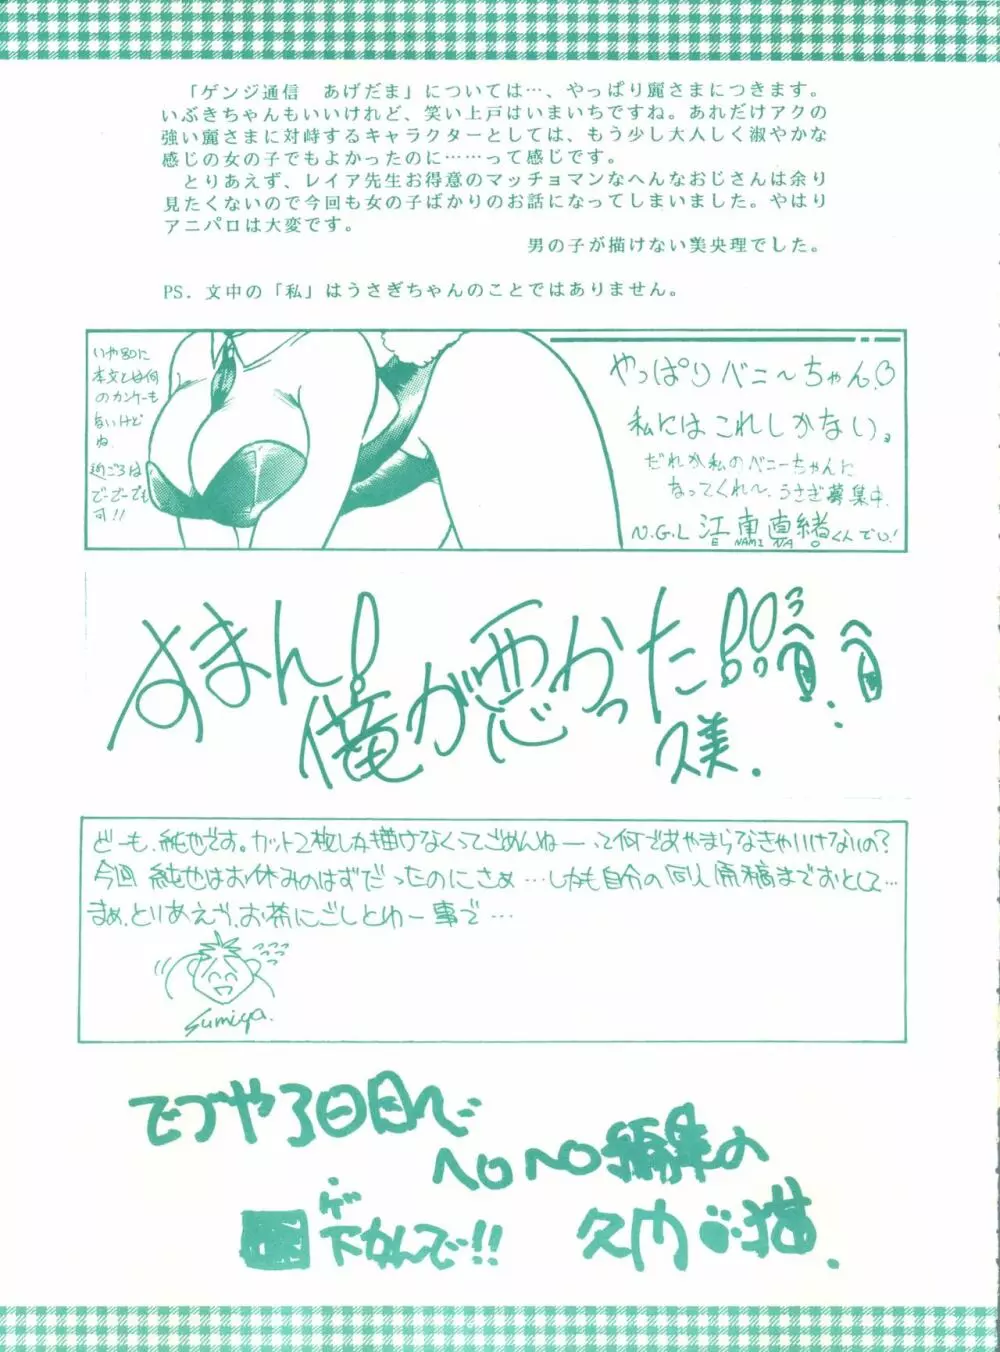 「ゲンジ通信　あげだま」については…、やっぱり麗さまにつきます。
いぶきちゃんもいいけれど、笑い上戸はいまいちですね。あれだけアクの
強い麗さまに対峙するキャラクターとしては、もう少し大人しく淑やかな
感じの女の子でもよかったのに……って感じです。
とりあえず、レイア先生お得意のマッチョマンなへんなおじさんは余り
見たくないので今回も女の子ばかりのお話になってしまいました。やはり
アニパロは大変です。
男の子が描けない美央理でした。
PS．文中の「私」はうさぎちゃんのことではありません。
いや別に
本文とは何
のカンケーも
ないけど
ね
近ごろは
でーでーでも
可!!
やっぱりバニ〜ちゃん♡
私にはこれしかない。
だれか私のバニーちゃんに
なってくれ〜、うさぎ募集中
N.G.L 江南直緒くんでい!
E NAMI NA O
すまん!
俺が悪かった!!
久美.
どーも、純也です。カット2枚しか描けなくってごめんねー―って何であやまらなきゃいけないの?
今回 純也はお休みのはずだったのにさぁ…しかも自分の同人原稿までおとして…
まぁ、とりあえず、お茶にごしとゆー事で…
Sumiya.
てつや3日目で
ヘロヘロ編集の
ゲ
下かんで!!
猫.